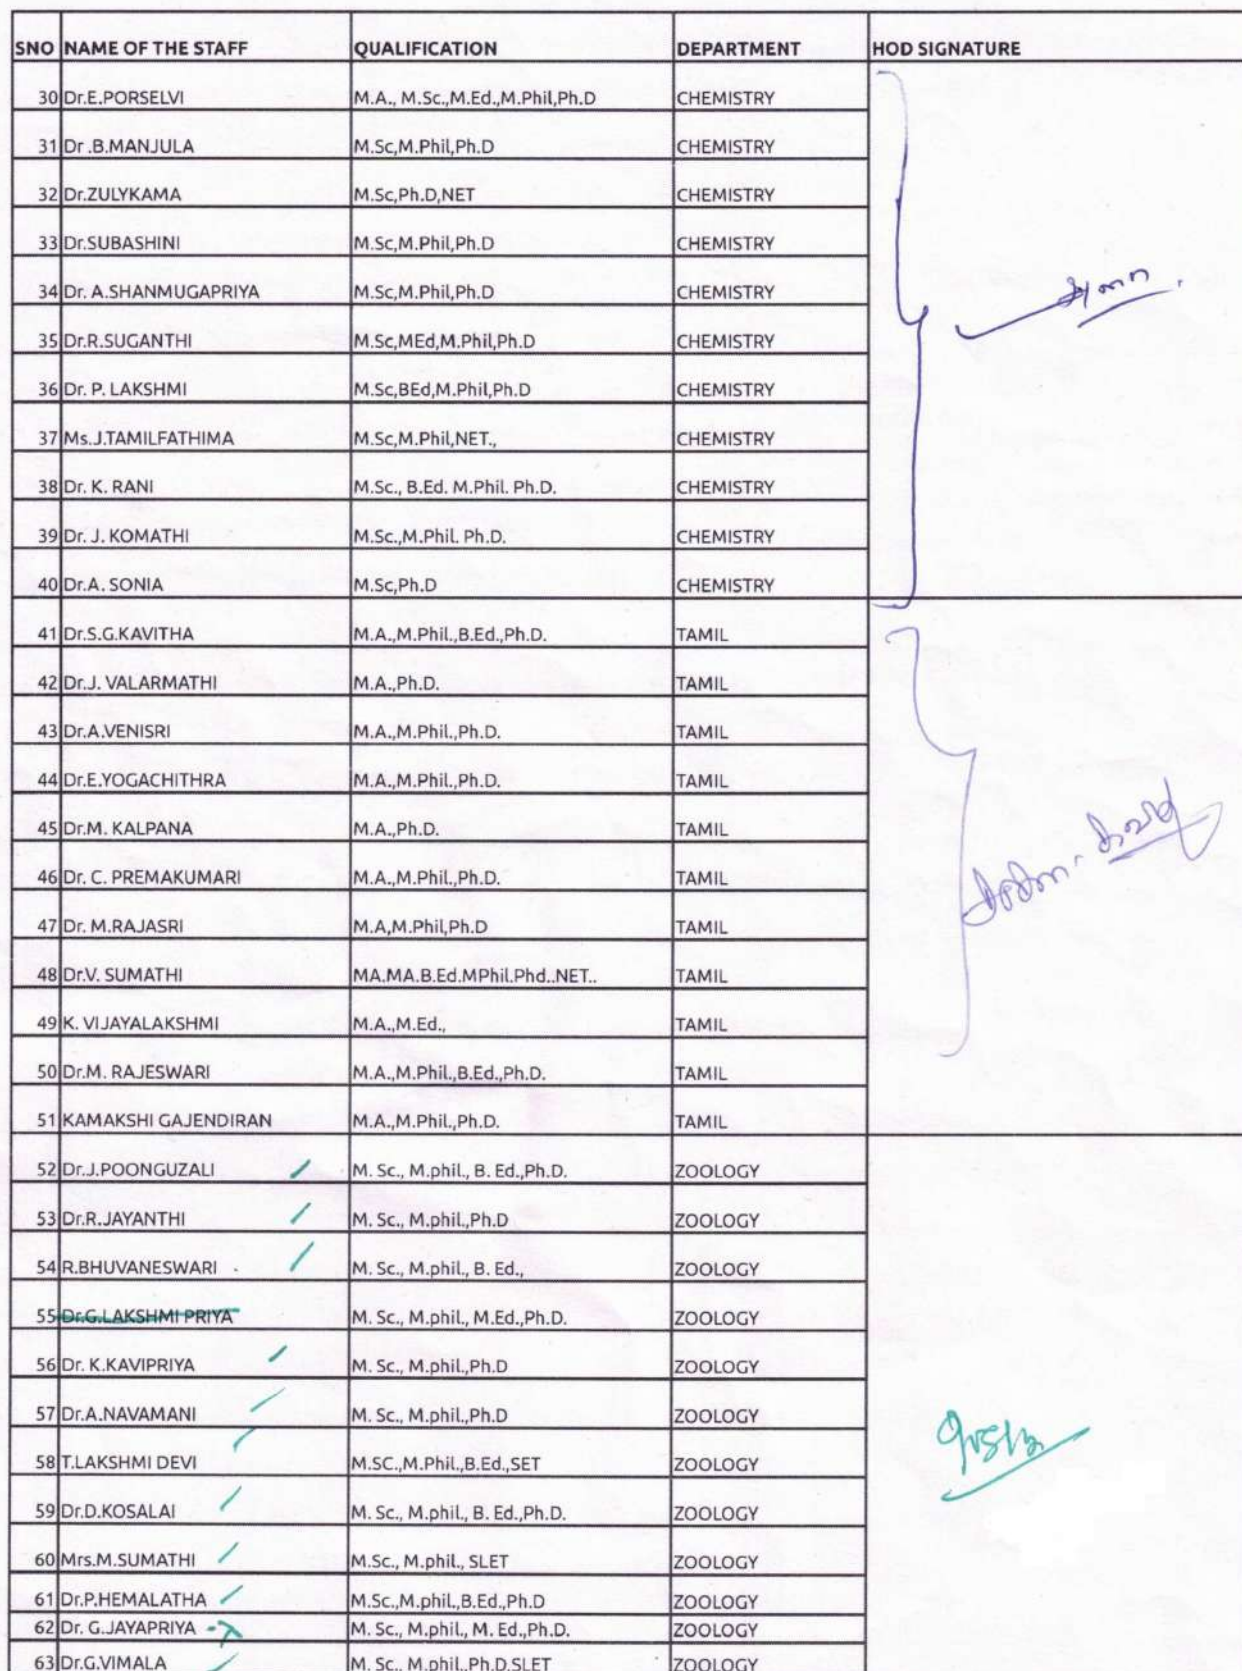 SNO NAME OF THE STAFF QUALIFICATION DEPARTMENT HOD SIGNATURE
30 Dr.E.PORSELVI M.A., M.Sc.,M.Ed.,M.Phil,Ph.D CHEMISTRY
31 Dr .B.MANJULA M.Sc,M.Phil,Ph.D CHEMISTRY
32 Dr.ZULYKAMA M.Sc,Ph.D,NET CHEMISTRY
33 Dr.SUBASHINI M.Sc,M.Phil,Ph.D CHEMISTRY
34 Dr. A.SHANMUGAPRIYA M.Sc,M.Phil,Ph.D CHEMISTRY
35 Dr.R.SUGANTHI M.Sc,MEd,M.Phil,Ph.D CHEMISTRY
36 Dr. P. LAKSHMI M.Sc,BEd,M.Phil,Ph.D CHEMISTRY
37 Ms.J.TAMILFATHIMA M.Sc,M.Phil,NET., CHEMISTRY
38 Dr. K. RANI M.Sc., B.Ed. M.Phil. Ph.D. CHEMISTRY
39 Dr. J. KOMATHI M.Sc.,M.Phil. Ph.D. CHEMISTRY
40 Dr.A. SONIA M.Sc,Ph.D CHEMISTRY
41 Dr.S.G.KAVITHA M.A.,M.Phil.,B.Ed.,Ph.D. TAMIL
42 Dr.J. VALARMATHI M.A.,Ph.D. TAMIL
43 Dr.A.VENISRI M.A.,M.Phil.,Ph.D. TAMIL
44 Dr.E.YOGACHITHRA M.A.,M.Phil.,Ph.D. TAMIL
45 Dr.M. KALPANA M.A.,Ph.D. TAMIL
46 Dr. C. PREMAKUMARI M.A.,M.Phil.,Ph.D. TAMIL
47 Dr. M.RAJASRI M.A,M.Phil,Ph.D TAMIL
48 Dr.V. SUMATHI MA.MA.B.Ed.MPhil.Phd..NET.. TAMIL
49 K. VIJAYALAKSHMI M.A.,M.Ed., TAMIL
50 Dr.M. RAJESWARI M.A.,M.Phil.,B.Ed.,Ph.D. TAMIL
51 KAMAKSHI GAJENDIRAN M.A.,M.Phil.,Ph.D. TAMIL
52 Dr.J.POONGUZALI M. Sc., M.phil., B. Ed.,Ph.D. ZOOLOGY
53 Dr.R.JAYANTHI M. Sc., M.phil.,Ph.D ZOOLOGY
54 R.BHUVANESWARI M. Sc., M.phil., B. Ed., ZOOLOGY
55 Dr.G.LAKSHMI PRIYA M. Sc., M.phil., M.Ed.,Ph.D. ZOOLOGY
56 Dr. K.KAVIPRIYA M. Sc., M.phil.,Ph.D ZOOLOGY
57 Dr.A.NAVAMANI M. Sc., M.phil.,Ph.D ZOOLOGY
58 T.LAKSHMI DEVI M.SC.,M.Phil.,B.Ed.,SET ZOOLOGY
59 Dr.D.KOSALAI M. Sc., M.phil., B. Ed.,Ph.D. ZOOLOGY
60 Mrs.M.SUMATHI M.Sc., M.phil., SLET ZOOLOGY
61 Dr.P.HEMALATHA M.Sc.,M.phil.,B.Ed.,Ph.D ZOOLOGY
62 Dr. G.JAYAPRIYA M. Sc., M.phil., M. Ed.,Ph.D. ZOOLOGY
63 Dr.G.VIMALA M. Sc., M.phil.,Ph.D.SLET ZOOLOGY